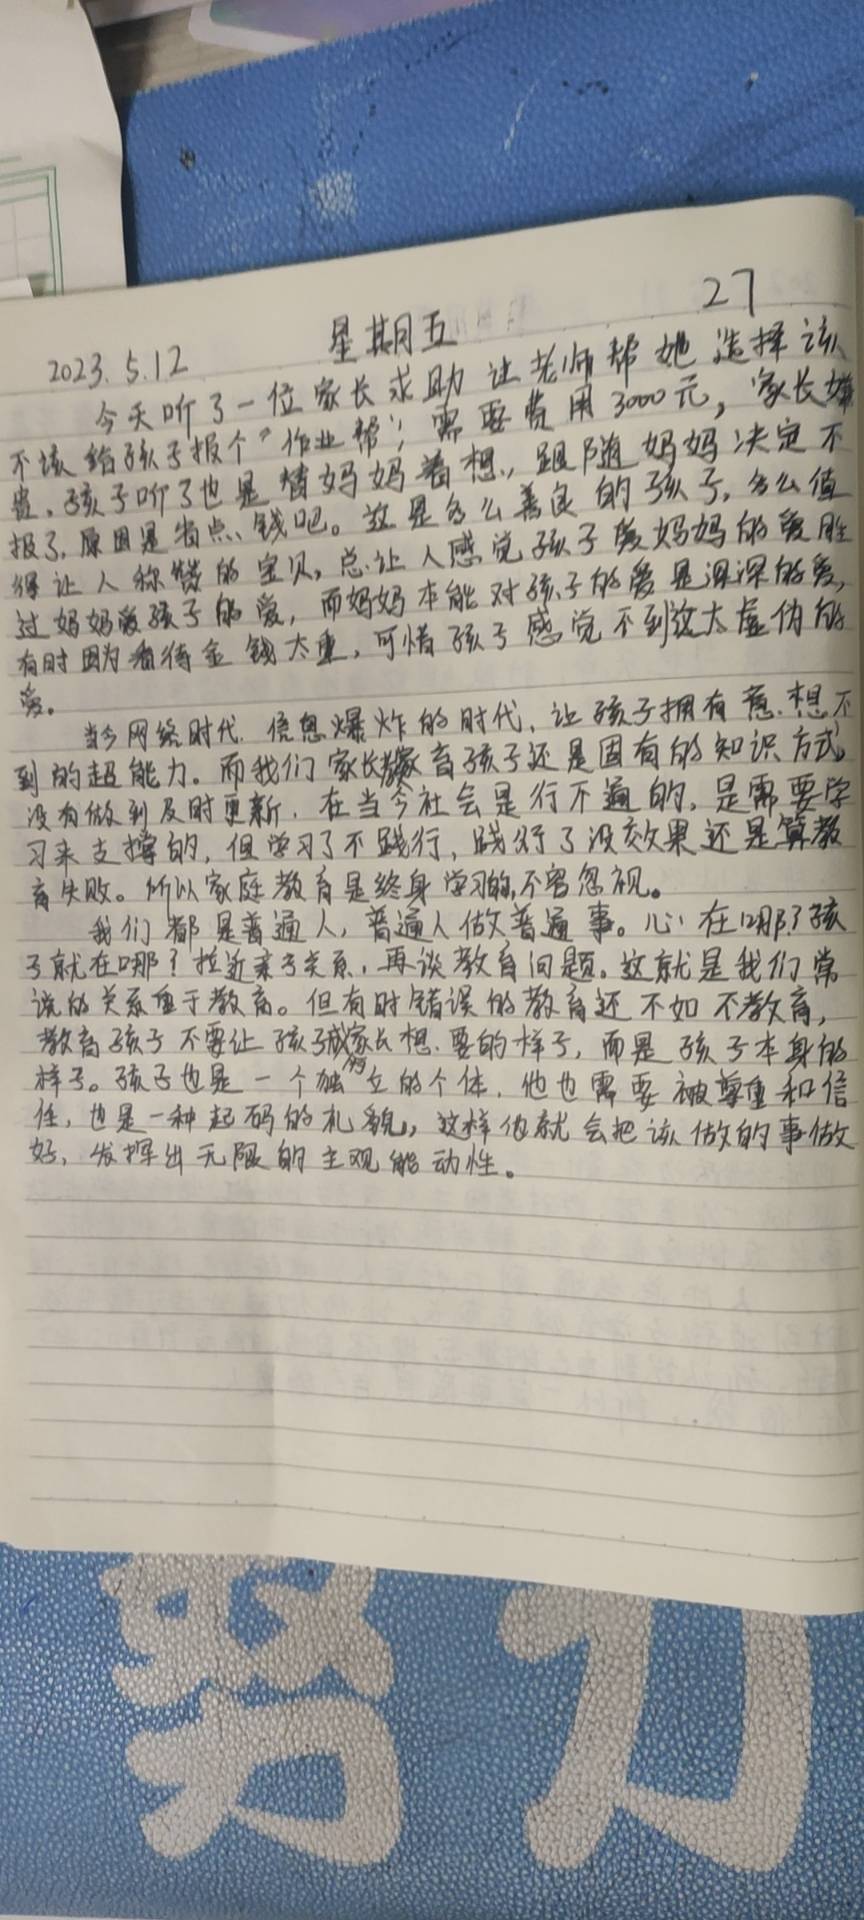 27
2023.5.12 星期五
今天听了一位家长求助让老师帮她选择该
不该给孩子报个“作业帮”,需要费用3000元,家长嫌
贵,孩子听了也是替妈妈着想,跟随妈妈决定不
报了,原因是省点钱吧。这是多么善良的孩子,多么值
得让人称赞的宝贝,总让人感觉孩子爱妈妈的爱胜
过妈妈爱孩子的爱,而妈妈本能对孩子的爱是深深的爱,
有时因为看待金钱太重,可惜孩子感觉不到这太虚伪的
爱。
当今网络时代,信息爆炸的时代,让孩子拥有意想不
到的超能力。而我们家长教育孩子还是固有的知识方式,
没有做到及时更新,在当今社会是行不通的,是需要学
习来支撑的,但学习了不践行,践行了没效果还是算教
育失败。所以家庭教育是终身学习的,不容忽视。
我们都是普通人,普通人做普通事。心在哪了孩
子就在哪?拉近亲子关系,再谈教育问题。这就是我们常
说的关系重于教育。但有时错误的教育还不如不教育,
教育孩子不要让孩子成为家长想要的样子,而是孩子本身的
样子。孩子也是一个独立的个体,他也需要被尊重和信
任,也是一种起码的礼貌,这样他就会把该做的事做
好,发挥出无限的主观能动性。
努力